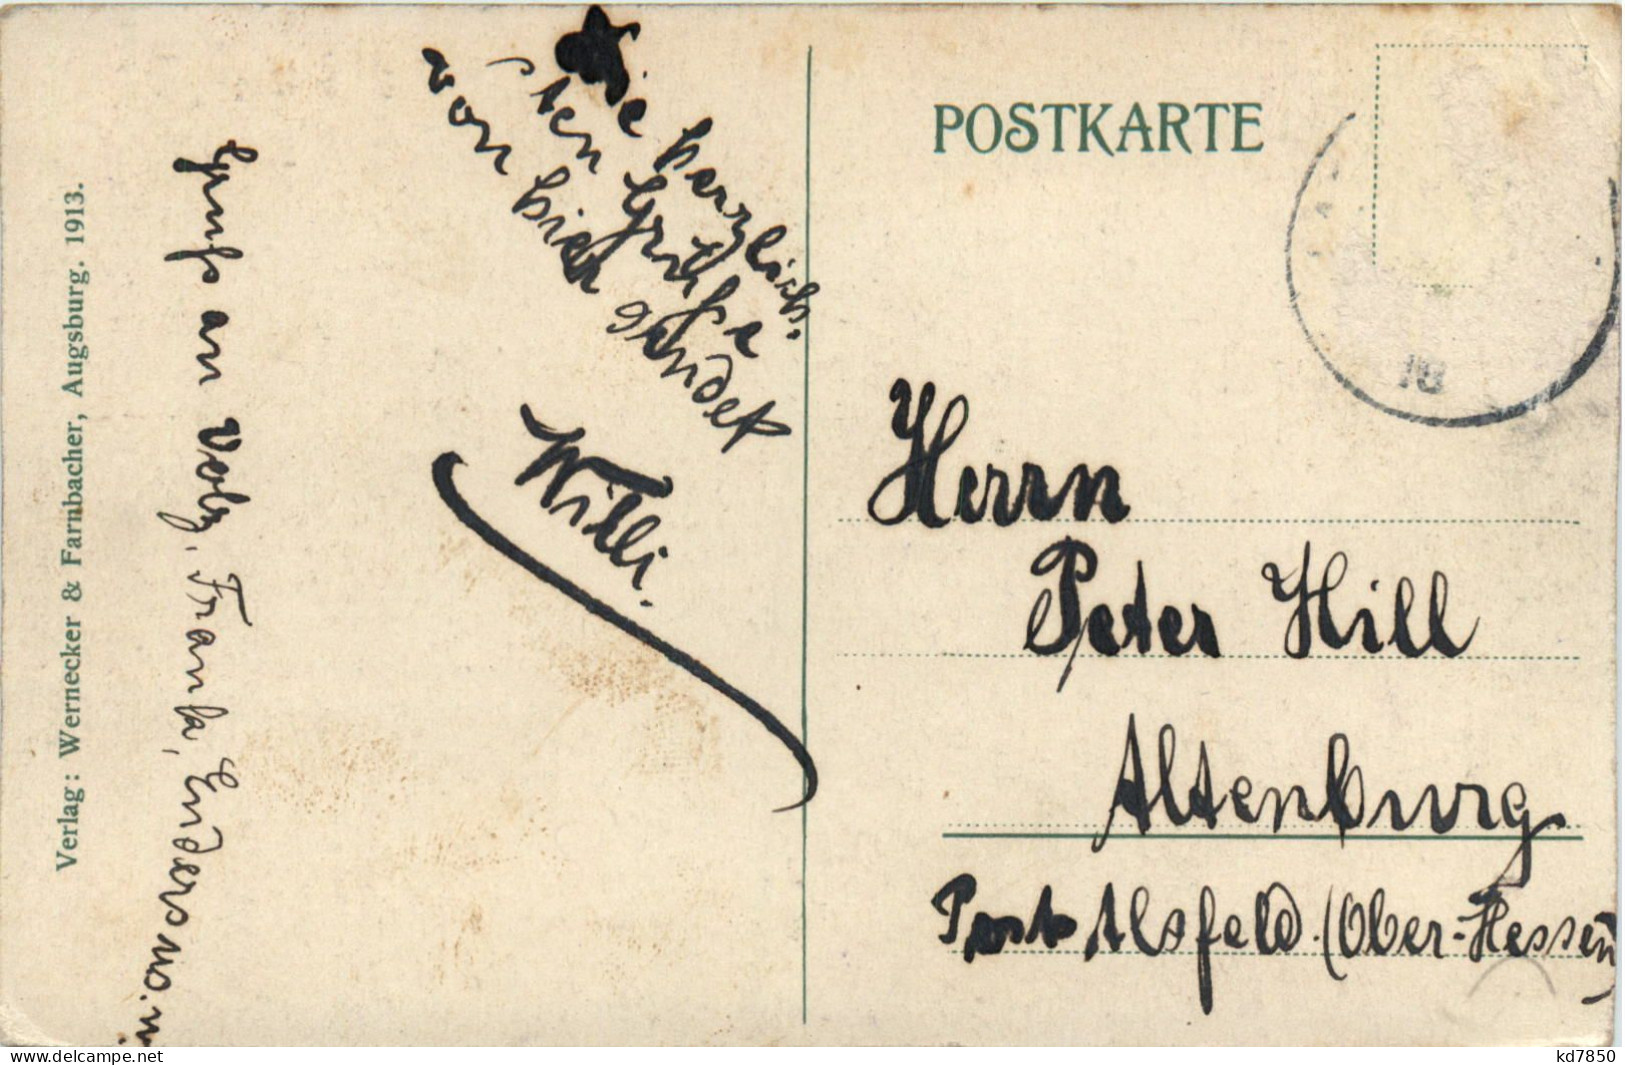 Verlag: Wernecker & Farnbacher, Augsburg. 1913.
Gruß an Volz, Frank, Enders
Die herzlich-
sten Grüße
von hier sendet
Willi.
POSTKARTE
18
Herrn
Peter Hill
Altenburg
Post Alsfeld. (Ober-Hessen)
www.delcampe.net
kd7850